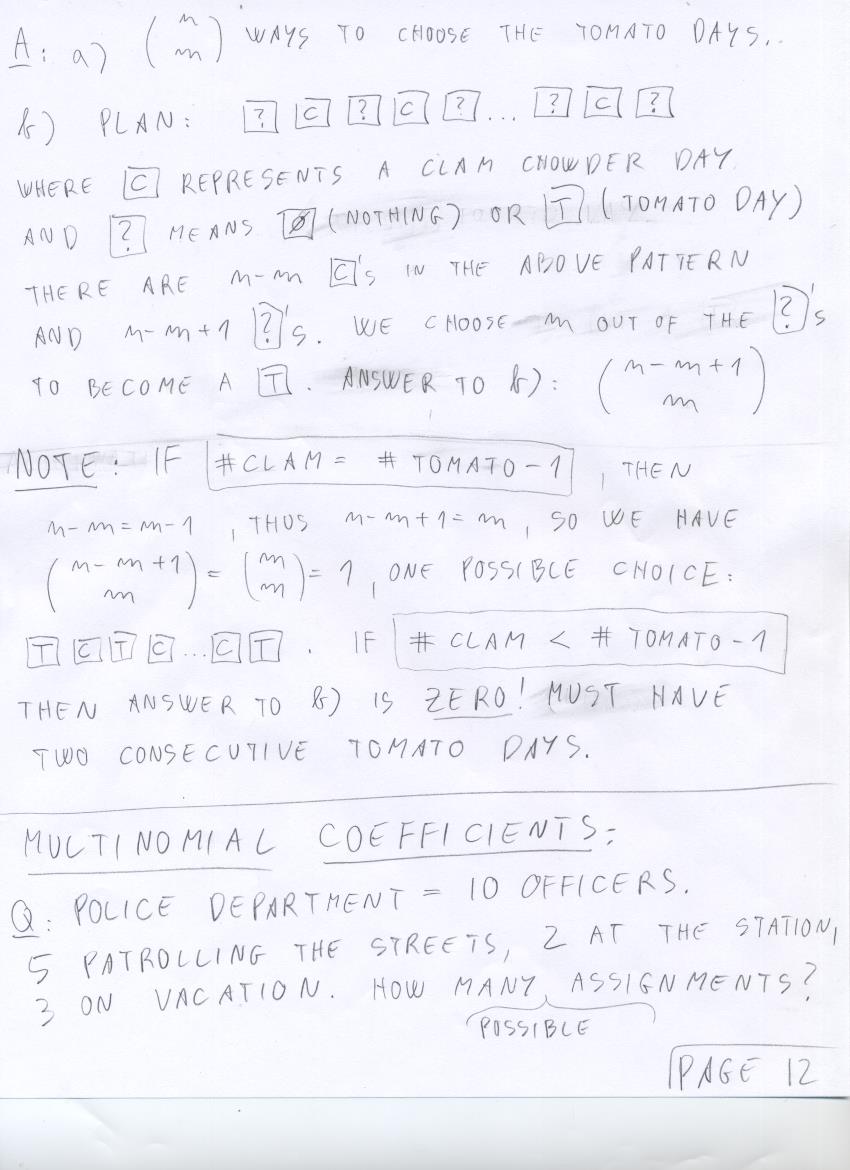 A: a) (n m) WAYS TO CHOOSE THE TOMATO DAYS.
b) PLAN: ? C ? C ? ... ? C ?
WHERE C REPRESENTS A CLAM CHOWDER DAY
AND ? MEANS Ø (NOTHING) OR T (TOMATO DAY)
THERE ARE n-m C'S IN THE ABOVE PATTERN
AND n-m+1 ?'S. WE CHOOSE m OUT OF THE ?'S
TO BECOME A T. ANSWER TO b): (n-m+1 m)
NOTE: IF #CLAM = #TOMATO-1, THEN
n-m=m-1, THUS n-m+1=m, SO WE HAVE
(n-m+1 m) = (m m) = 1, ONE POSSIBLE CHOICE:
T C T C ... C T. IF # CLAM < # TOMATO-1
THEN ANSWER TO b) IS ZERO! MUST HAVE
TWO CONSECUTIVE TOMATO DAYS.
MULTINOMIAL COEFFICIENTS:
Q: POLICE DEPARTMENT = 10 OFFICERS.
5 PATROLLING THE STREETS, 2 AT THE STATION,
3 ON VACATION. HOW MANY ASSIGNMENTS?
POSSIBLE
PAGE 12